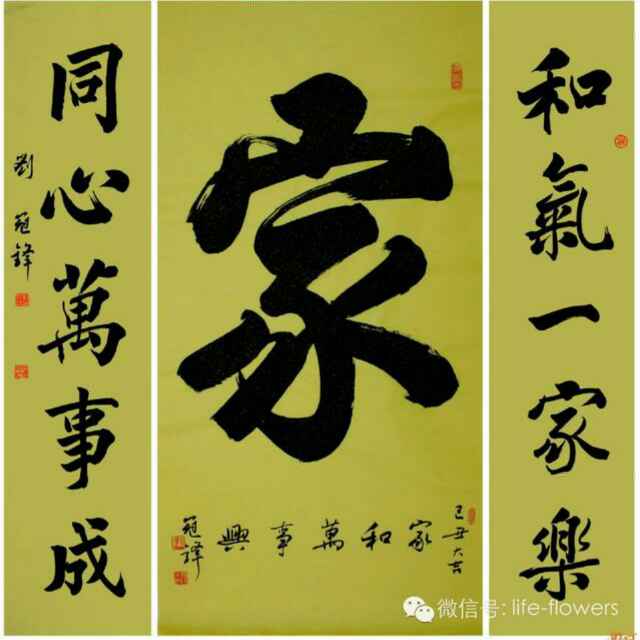 和氣一家樂
家
己丑大吉
家和萬事興
同心萬事成
劉冠
微信号: life-flowers